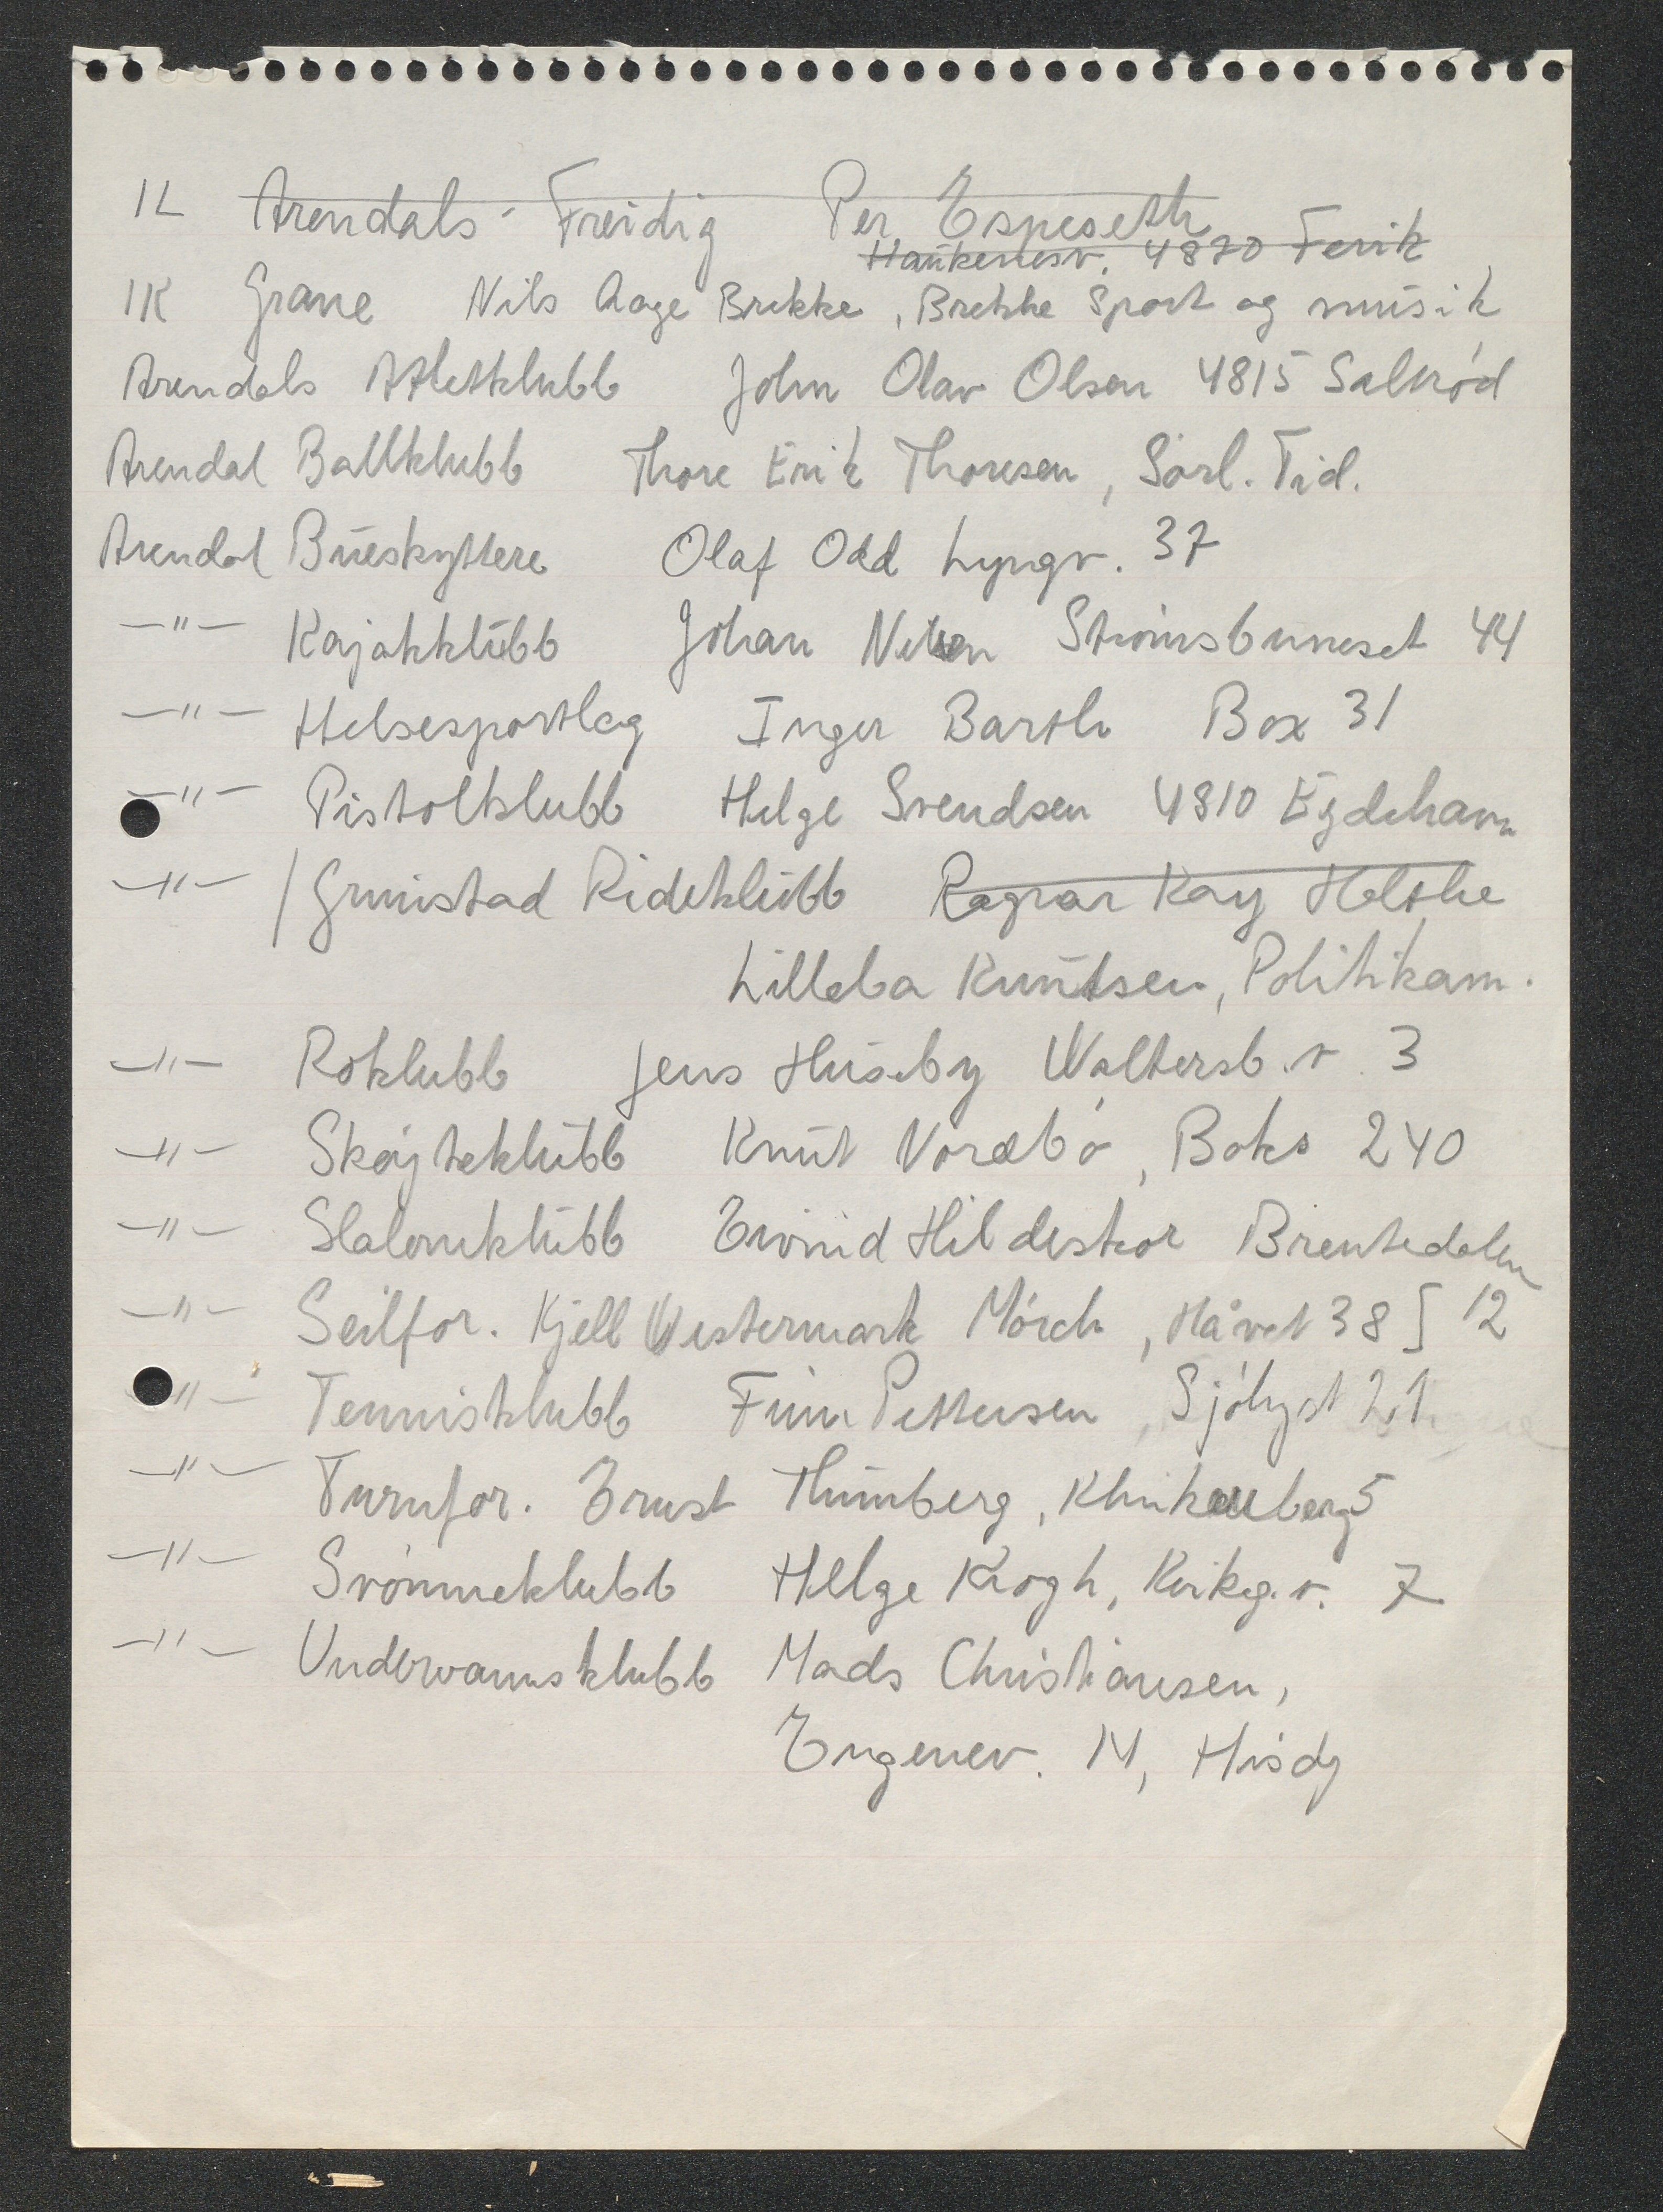 IL Arendals-Freidig Per Espeseth
Haukenesv. 4870 Fevik
IK Grane Nils Aage Brekke, Brekke Sport og musik
Arendals Atletklubb John Olav Olsen 4815 Saltrød
Arendal Ballklubb Thore Erik Thoresen, Sørl. Tid.
Arendal Bueskyttere Olaf Odd Lyngv. 37
—"— Kajakklubb Johan Nilsen Strømsbuneset 44
—"— Helsesportlag Inger Barth Box 31
—"— Pistolklubb Helge Svendsen 4810 Eydehavn
—"— / Grimstad Rideklubb Ragnar Kay Holthe
Lilleba Knutsen, Politikam.
—"— Roklubb Jens Huseby Waltersb.v 3
—"— Skøyteklubb Knut Nordbø, Boks 240
—"— Slalomklubb Eivind Hildeskor Brentedalen
—"— Seilfor. Kjell Westermark Mørch, Håvet 38 12
—"— Tennisklubb Finn Pettersen, Sjølyst 21
—"— Turnfor. Ernst Thunberg, Klinkenberg 5
—"— Svømmeklubb Helge Krogh, Kirkeg.v. 7
—"— Undervannsklubb Mads Christiansen,
Engenev. 14, Hisøy